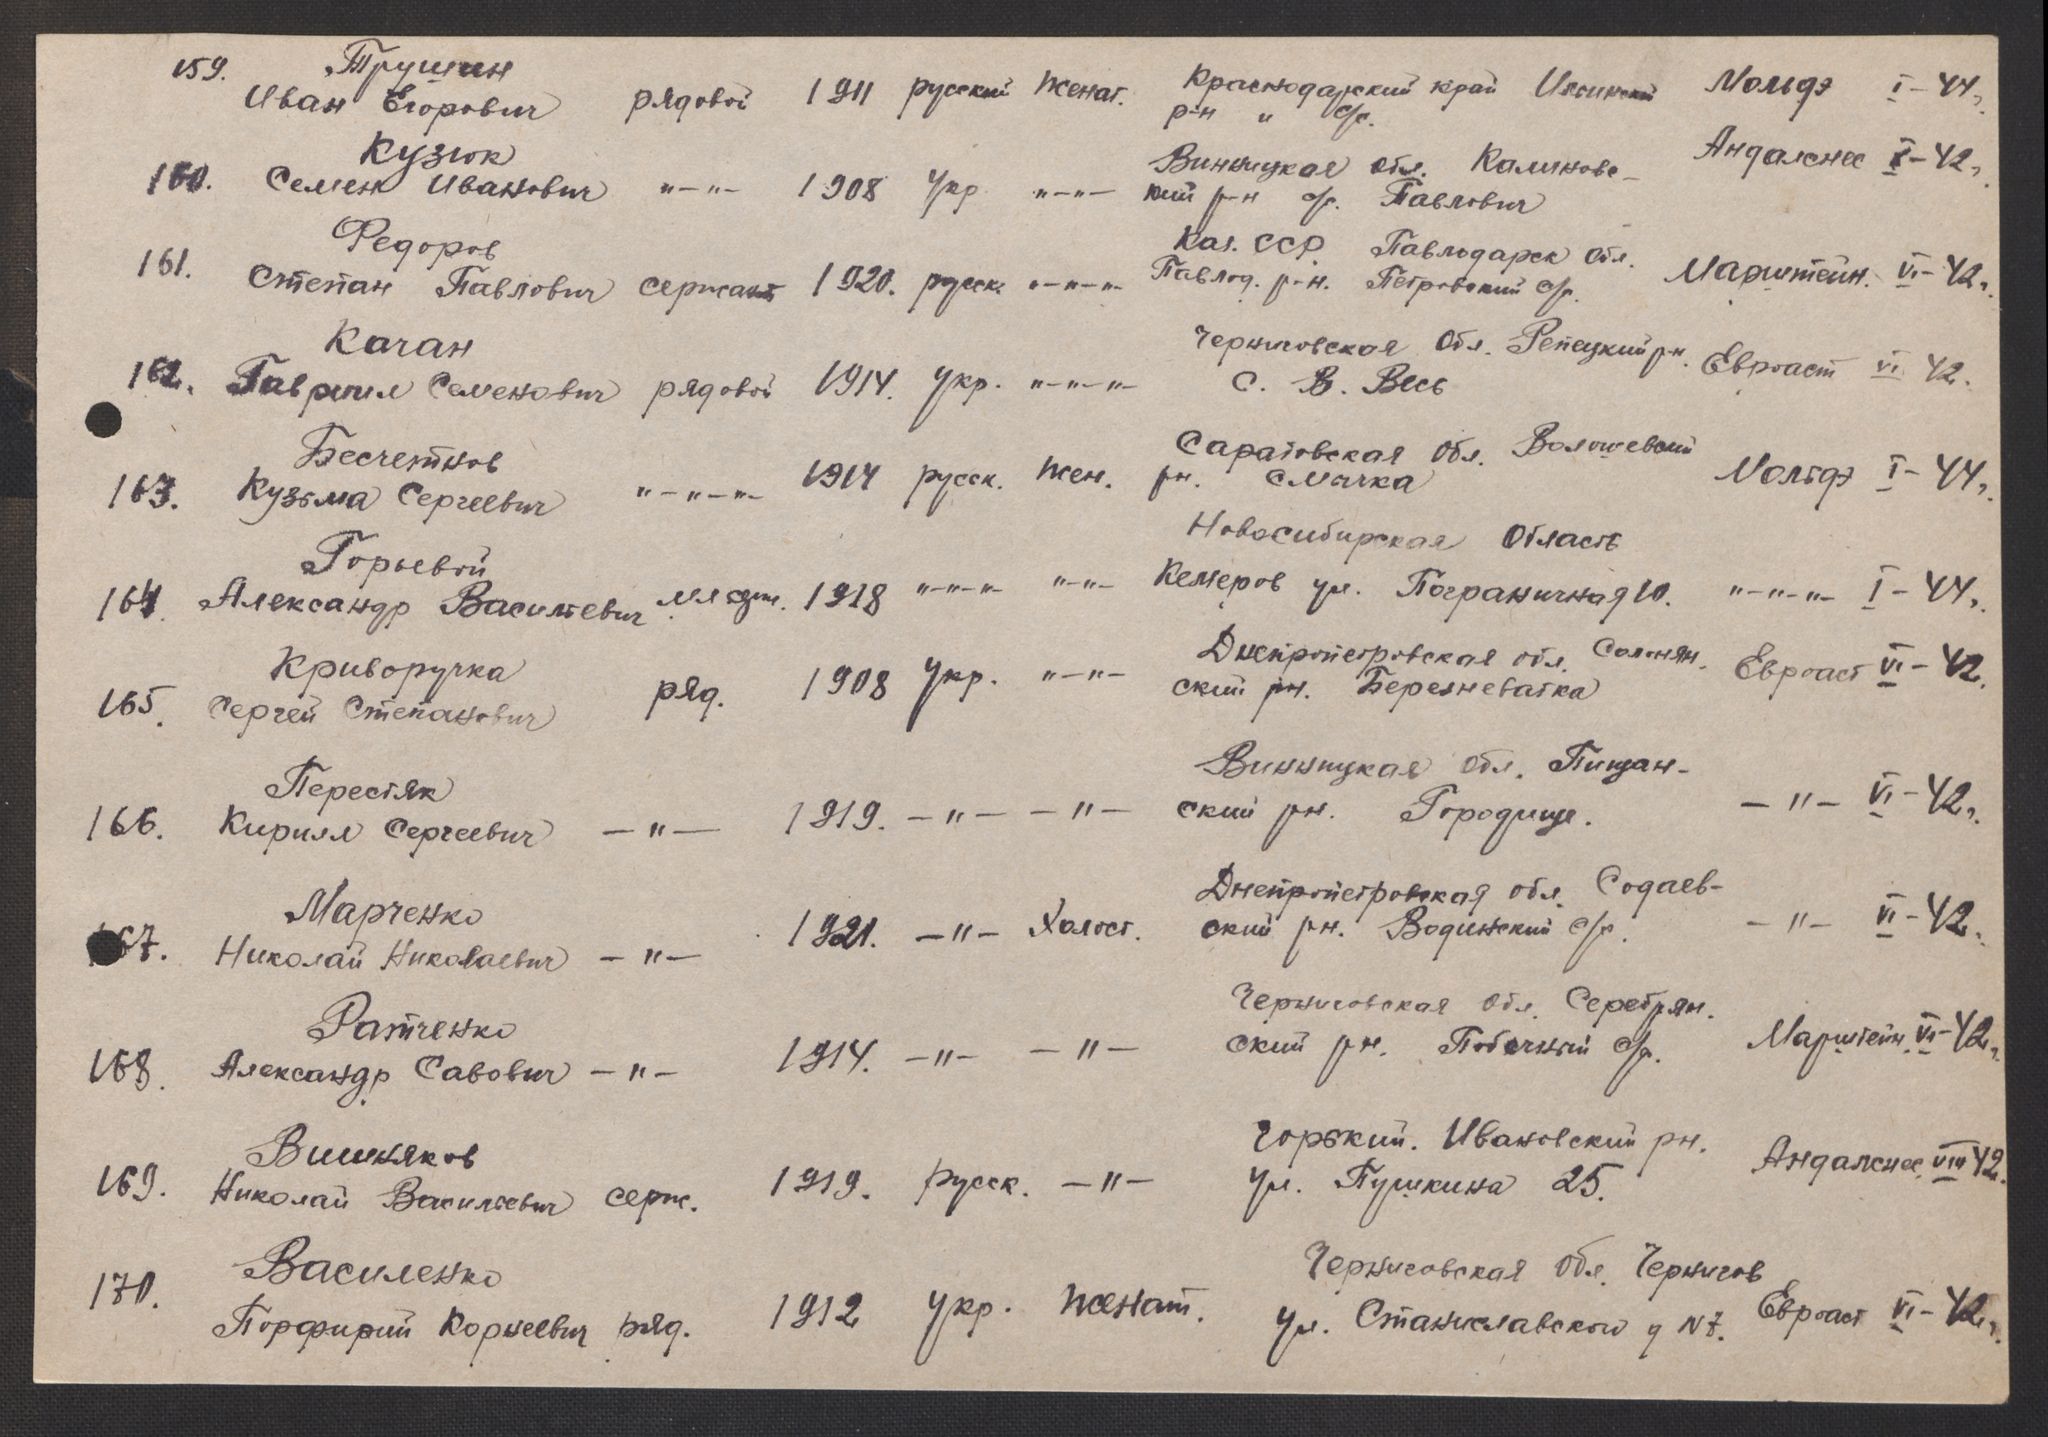 159. Трушин
Иван Егорович рядовой 1911 русский Женат. Краснодарский край Ильинский Мольдэ I – 44 г.
р-н " с/с.
160. Кузюк
Семен Иванович "–"– 1908 Укр "–"– Винницкая обл. Калиновс- Андалснес X – 42 г.
кий р-н с/с. Павлович
161. Федоров
Степан Павлович сержант 1920. русск. "–"–"– Каз. ССР Павлодарск Обл.
Павлод. р-н. Петровский с/с. Марштейн. VI – 42 г.
162. Качан
Гавриил Семенович рядовой 1914. Укр. "–"–"– Черниговская Обл. Репецкий рн. Евроаст VI 42.
с. В. Весь
163. Бесчетнов
Кузьма Сергеевич "–"–"– 1914 русск. Жен. Саратовская Обл. Волошевский
рн. Смычка Мольдэ I – 44 г.
164. Горьевой
Александр Васильевич мл сдж. 1918 "–"–"– "–"– Новосибирская Область
Кемеров ул. Пограничная 10. "–"–"– I – 44 г.
165. Криворучка
Сергей Степанович ряд. 1908 Укр. "–"– Днепропетровская обл. Солонян. Евроаст VI – 42.
ский рн. Березневатка
166. Перестяк
Кирилл Сергеевич –"– 1919. –"– –"– Винницкая Обл. Пищан-
ский рн. Городище. –"– VI – 42 г.
167. Марченко
Николай Николаевич –"– 1921. –"– Холост. Днепропетровская обл. Содаев-
ский рн. Водинский с/с. –"– VI – 42.
168. Ратченко
Александр Савович –"– 1914. –"– –"– Черниговская Обл. Серебрян.
ский рн. Побочный с/с. Марштейн VI – 42 г.
169. Вишняков
Николай Васильевич серж. 1919. Русск. –"– Горький. Ивановский рн.
ул. Пушкина 25. Андалснес VIII 42.
170. Василенко
Порфирий Корнеевич ряд. 1912 Укр. Женат. Черниговская Обл. Чернигов
ул. Станиславского д N 7. Евроаст VI – 42 г.